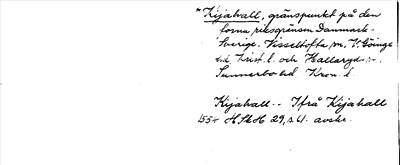 *Kijahall, gränspunkt på den
forna riksgränsen Danmark-
Sverige. Visseltofta sn, V. Göinge
hd Krist. l. och Hallaryds sn.
Sunnerbo hd Kron. l.
Kijahall -- Ifrå Kijahall
1554 HSkH 29, s. 61. avskr.